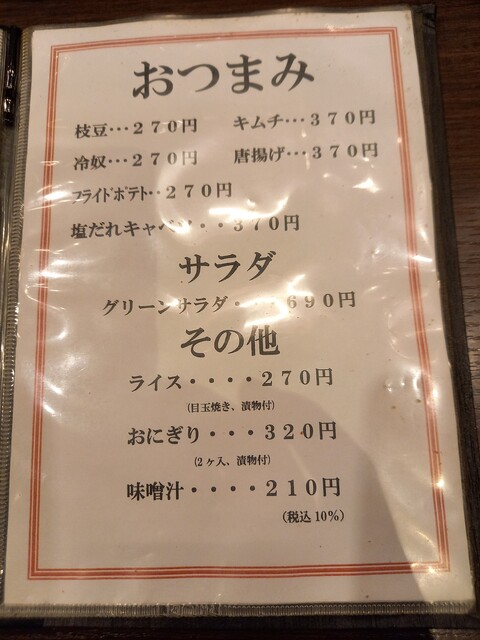 おつまみ
枝豆・・・２７０円 キムチ・・・３７０円
冷奴・・・２７０円 唐揚げ・・・３７０円
フライドポテト・・２７０円
塩だれキャベツ・・３７０円
サラダ
グリーンサラダ・・・６９０円
その他
ライス・・・・２７０円
(目玉焼き、漬物付)
おにぎり・・・３２０円
(２ヶ入、漬物付)
味噌汁・・・・２１０円
(税込 10%)